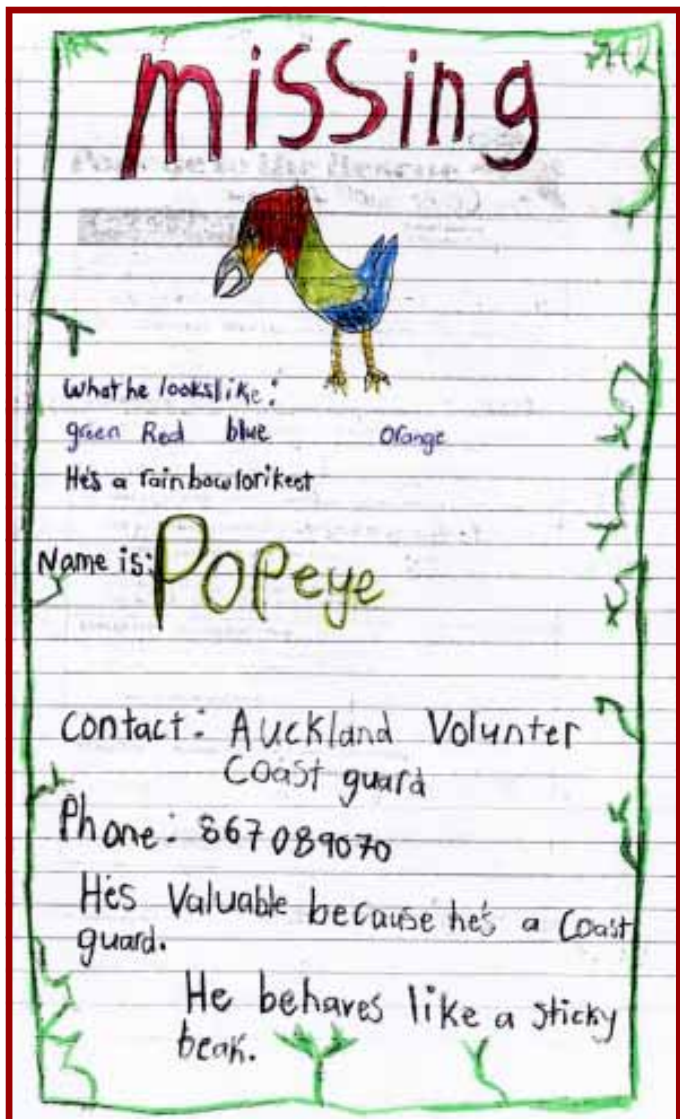 missing
What he looks like:
green Red blue Orange
He's a rainbow lorikeet
Name is: Popeye
contact: Auckland Volunter
Coast guard
Phone: 867089070
He's Valuable because he's a Coast
guard.
He behaves like a sticky
beak.